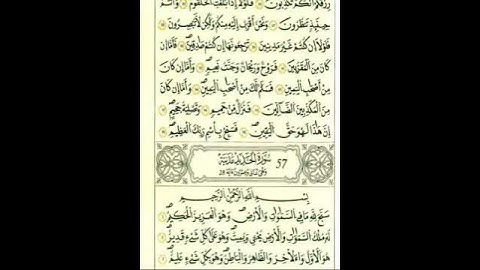 رِزْقَكُمْ أَنَّكُمْ تُكَذِّبُونَ ۝ فَلَوْلَا إِذَا بَلَغَتِ الْحُلْقُومَ ۝ وَأَنْتُمْ
حِينَئِذٍ تَنْظُرُونَ ۝ وَنَحْنُ أَقْرَبُ إِلَيْهِ مِنْكُمْ وَلَكِنْ لَا تُبْصِرُونَ ۝
فَلَوْلَا إِنْ كُنْتُمْ غَيْرَ مَدِينِينَ ۝ تَرْجِعُونَهَا إِنْ كُنْتُمْ صَادِقِينَ ۝ فَأَمَّا إِنْ
كَانَ مِنَ الْمُقَرَّبِينَ ۝ فَرَوْحٌ وَرَيْحَانٌ وَجَنَّتُ نَعِيمٍ ۝ وَأَمَّا إِنْ كَانَ
مِنْ أَصْحَابِ الْيَمِينِ ۝ فَسَلَامٌ لَكَ مِنْ أَصْحَابِ الْيَمِينِ ۝ وَأَمَّا إِنْ كَانَ
مِنَ الْمُكَذِّبِينَ الضَّالِّينَ ۝ فَنُزُلٌ مِنْ حَمِيمٍ ۝ وَتَصْلِيَةُ جَحِيمٍ ۝
إِنَّ هَذَا لَهُوَ حَقُّ الْيَقِينِ ۝ فَسَبِّحْ بِاسْمِ رَبِّكَ الْعَظِيمِ ۝
سُورَةُ الْحَدِيدِ مَدَنِيَّةٌ 57
بِسْمِ اللَّهِ الرَّحْمَنِ الرَّحِيمِ
سَبَّحَ لِلَّهِ مَا فِي السَّمَوَاتِ وَالْأَرْضِ وَهُوَ الْعَزِيزُ الْحَكِيمُ ۝
لَهُ مُلْكُ السَّمَوَاتِ وَالْأَرْضِ يُحْيِي وَيُمِيتُ وَهُوَ عَلَى كُلِّ شَيْءٍ قَدِيرٌ ۝
هُوَ الْأَوَّلُ وَالْآخِرُ وَالظَّاهِرُ وَالْبَاطِنُ وَهُوَ بِكُلِّ شَيْءٍ عَلِيمٌ ۝